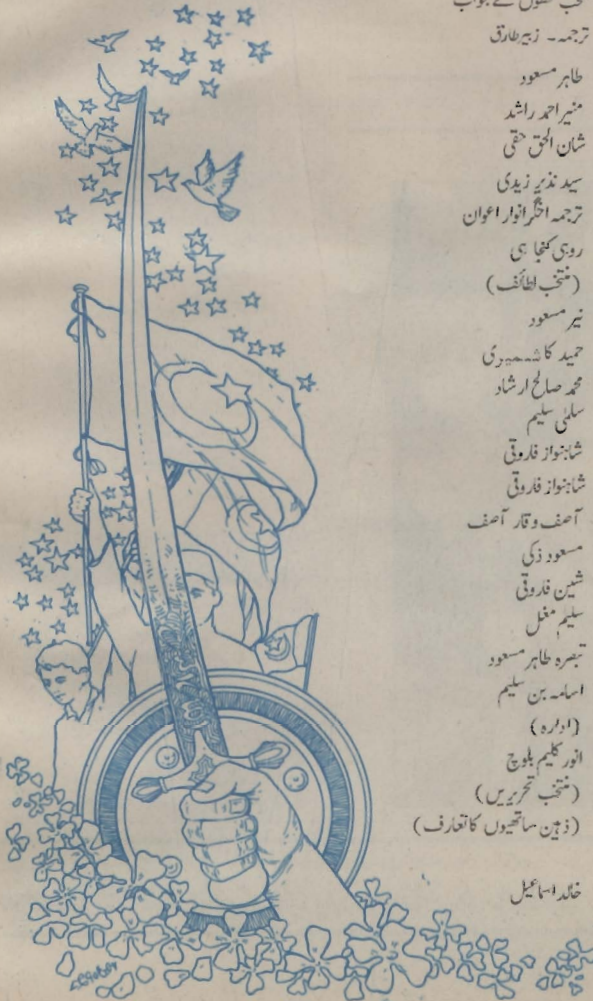 خطوں کے جواب
ترجمہ۔ زبیر طارق
طاہر مسعود
منیر احمد راشد
شان الحق حقی
سید نذیر زیدی
ترجمہ اخگر انوار اعوان
روہی کنجاہی
(منتخب لطائف)
نیر مسعود
حمید کاشمیری
محمد صالح ارشاد
سلمٰی سلیم
شاہنواز فاروقی
شاہنواز فاروقی
آصف وقار آصف
مسعود ذکی
شین فاروقی
سلیم مغل
تبصرہ طاہر مسعود
اسامہ بن سلیم
(ادارہ)
انور کلیم بلوچ
(منتخب تحریریں)
(ذہین ساتھیوں کا تعارف)
خالد اسماعیل